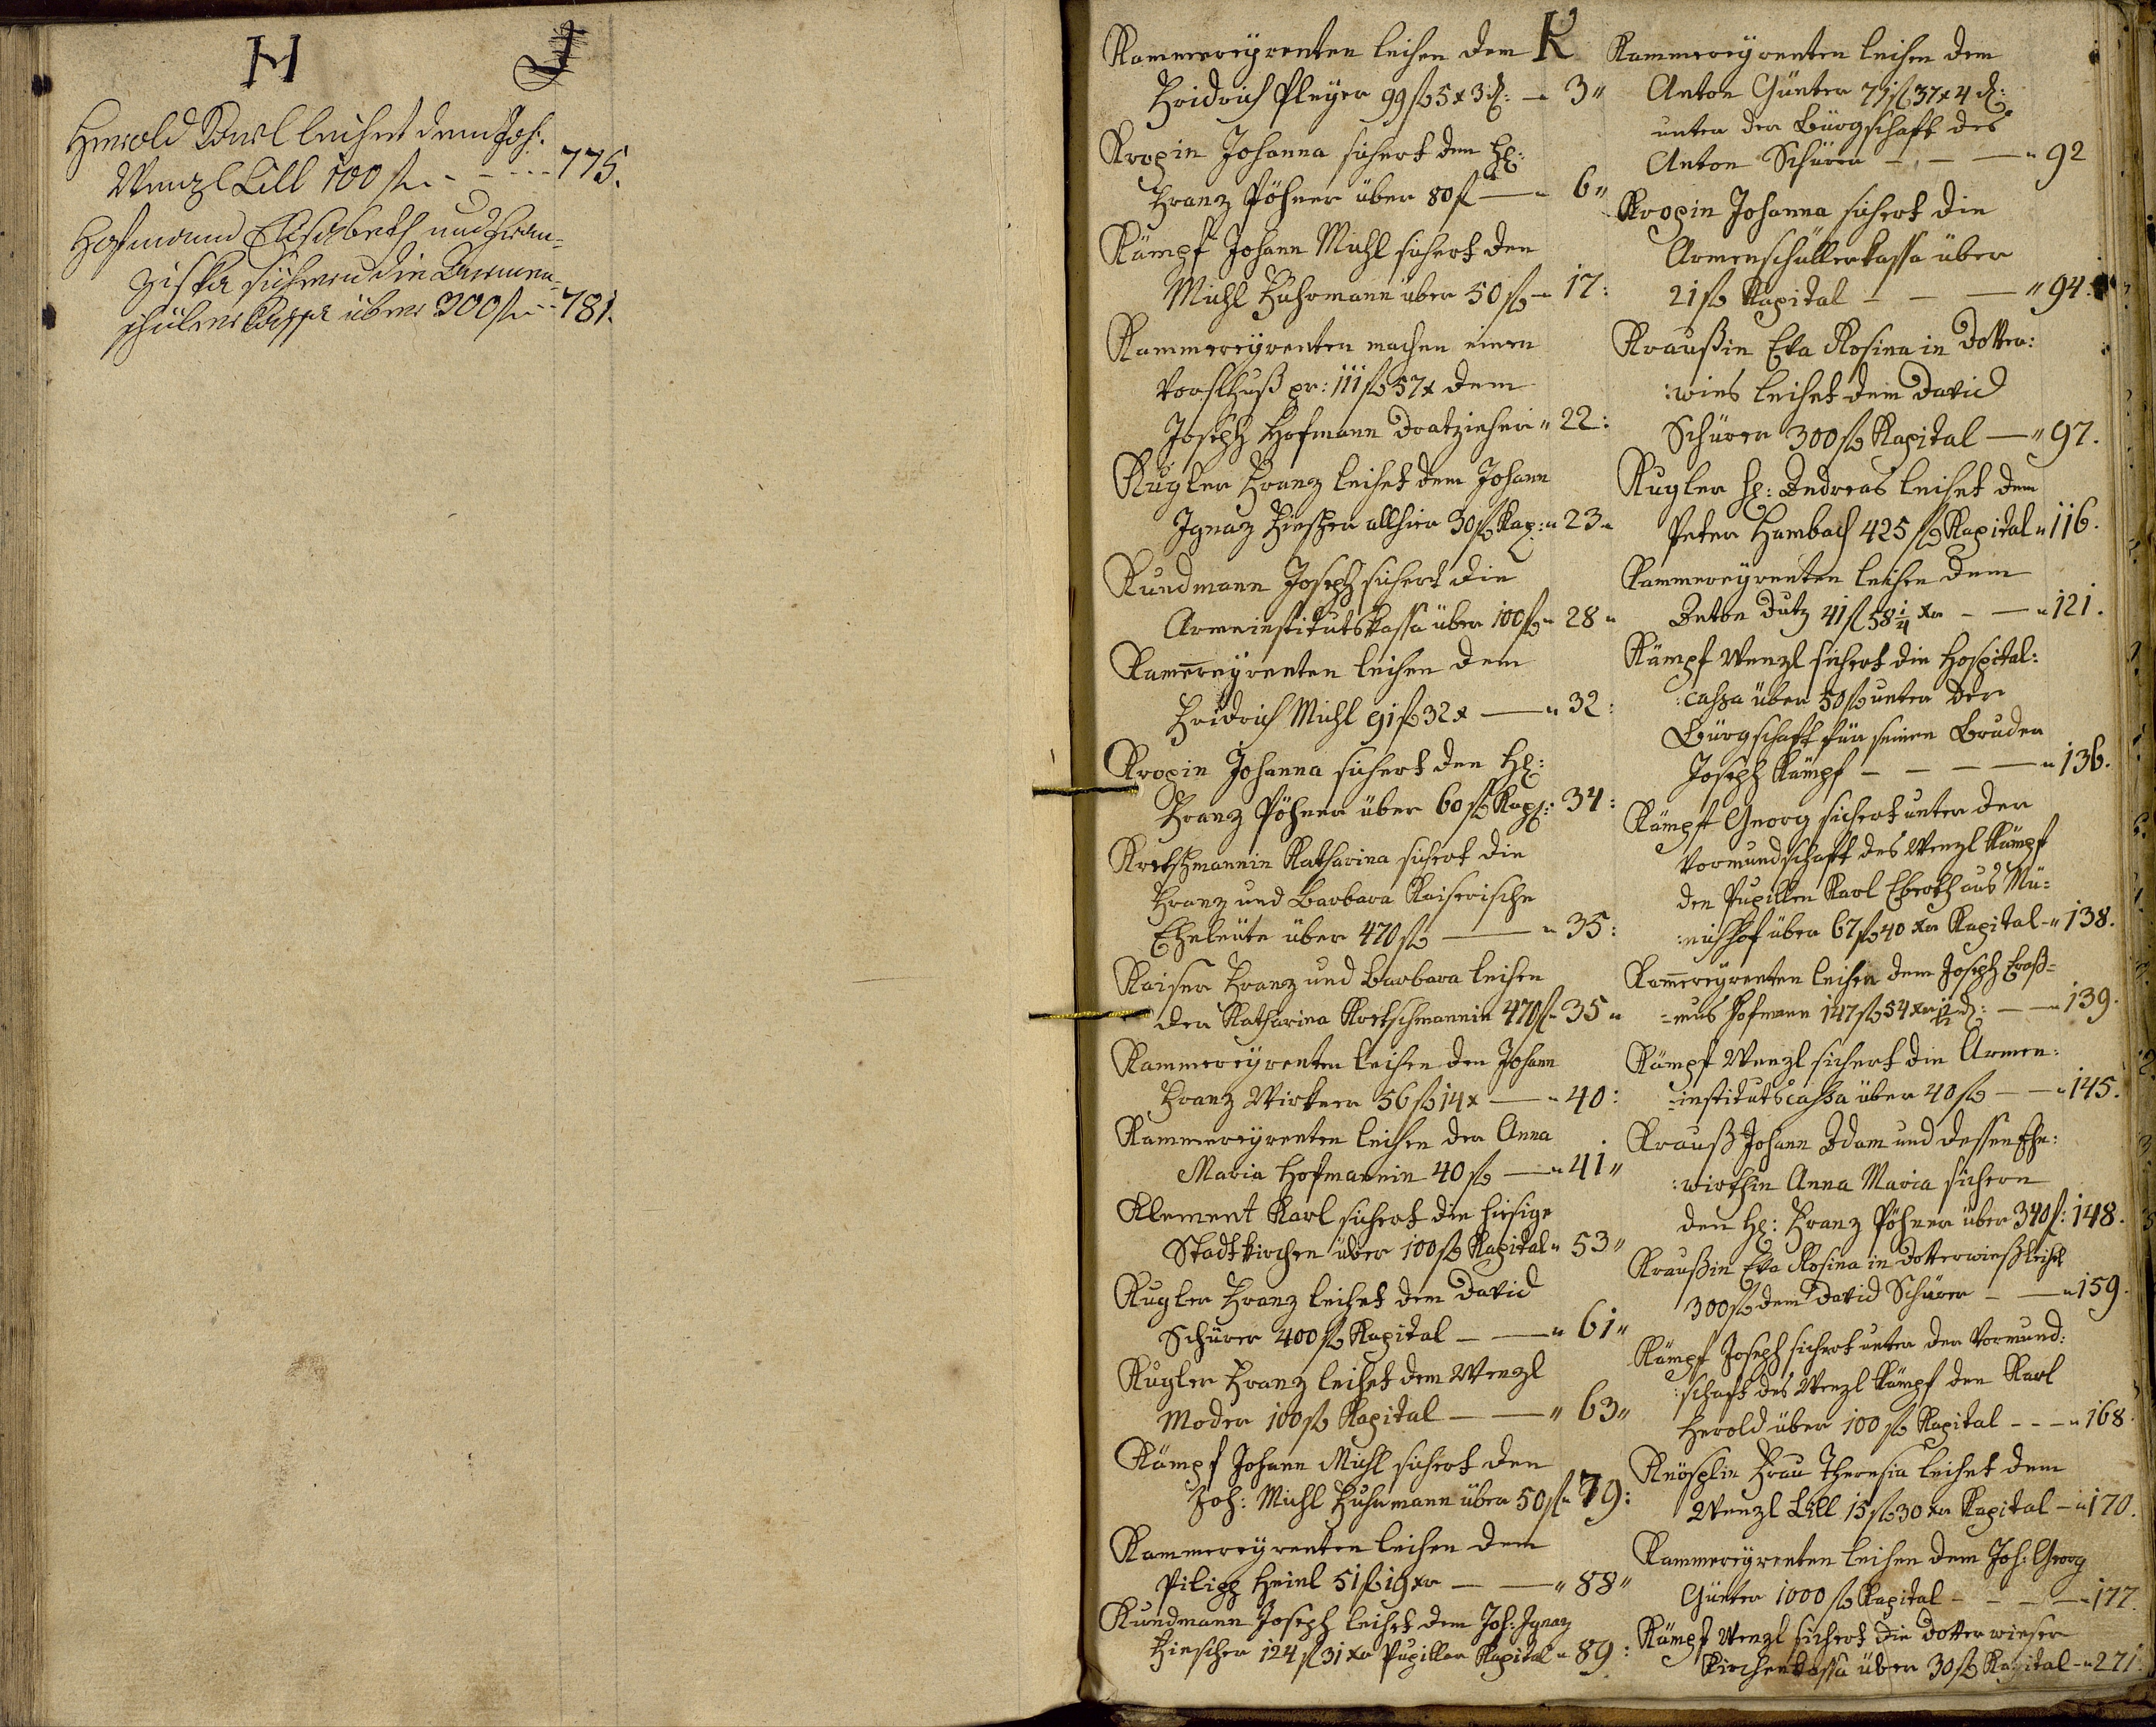 H
J
Herold Karl leihet dem Joh:
Wenzl Lill 100 fl. - - - - - 775.
Hofmann Elisabeth und Fran=
ziska sichern die Armen=
schüler Kassa über 300 fl. - - 781.
K
Kammereyrenten leihen dem
Fridrich Pleyer 99 fl 5 x 3 d: — 3"
Kropin Johanna sichert den H:
Franz Pöhner über 80 f — 6"
Kämpf Johann Michl sichert den
Michl Fuhrmann über 50 fl — 17:
Kammereyrenten machen einen
Vorschuß pr: 111 fl 57 x dem
Joseph Hofmann Dratzieher " 22:
Kugler Franz leihet dem Johann
Ignaz Hüscher allhier 30 fl Kap: " 23 "
Kundmann Joseph sichert die
Armeinstitutskassa über 100 fl " 28 "
Kam̅ereyrenten leihen dem
Fridrich Michl 91 fl 32 x — " 32:
Kropin Johanna sichert den H:
Franz Pöhner über 60 fl Kap: 34:
Kretschmannin Katharina sichert die
Franz und Barbara Kaiserische
Eheleute über 470 fl — " 35:
Kaiser Franz und Barbara leihen
der Katharina Kretschmannin 470 fl " 35 "
Kammereyrenten leihen den Johann
Franz Wirkner 56 fl 14 x — " 40:
Kammereyrenten leihen der Anna
Maria Hofmannin 40 fl — " 41"
Klement Karl sichert die hiesige
Stadtkirchen über 100 fl Kapital " 53"
Kugler Franz leihet dem David
Schürer 400 fl Kapital — — " 61"
Kugler Franz leihet dem Wenzl
Moder 100 fl Kapital — — " 63"
Kämpf Johann Michl sichert den
Joh: Michl Fuhrmann über 50 fl " 79:
Kammereyrenten leihen dem
Pilipp Heinl 51 fl 19 xr — — " 88"
Kundmann Joseph leihet dem Joh: Ignaz
Hüscher 124 fl 31 xr Pupillar Kapital " 89:
Kammereyrenten leihen dem
Anton Günter 77 fl 37 x 4 d:
unter der Bürgschaft des
Anton Schürer — — — " 92
Kropin Johanna sichert die
Armenschüllerkassa über
21 fl Kapital — — — " 94.
Kraußin Eva Rosina in Dotter:
:wies leihet dem David
Schürer 300 fl Kapital — " 97.
Kugler H: Andreas leihet dem
Peter Hambach 425 fl Kapital " 116.
Kammereyrenten leihen dem
Anton Dutz 41 fl 58 1/4 xr — — " 121.
Kämpf Wenzl sichert die Hospital:
:cassa über 50 fl unter der
Bürgschaft für seinen Bruder
Joseph Kämpf — — — — " 136.
Kämpf Georg sichert unter der
Vormundschaft des Wenzl Kämpf
den Pupillen Karl Eberth aus Mü=
:nichhof über 67 fl 40 xr Kapital — " 138.
Kam̅ereyrenten leihen dem Joseph Eraß=
=mus Hofmann 147 fl 54 xr 1 1/2 d: — — " 139.
Kämpf Wenzl sichert die Armen:
=institutscassa über 40 fl — — " 145.
Krauß Johann Adam und dessen Ehe:
:wirthin Anna Maria sichern
den H: Franz Pöhner über 340 f: 148.
Kraußin Eva Rosina in Dotterwieß leihet
300 fl dem David Schürer — — " 159.
Kämpf Joseph sichert unter der Vormund:
:schaft des Wenzl Kämpf den Karl
Herold über 100 fl Kapital - - - " 168.
Knösplin Frau Theresia leihet dem
Wenzl Lill 15 fl 30 xr Kapital — " 170.
Kammereyrenten leihen dem Joh: Georg
Günter 1000 fl Kapital — — — " 177.
Kämpf Wenzl sichert die Dotterwieser
Kirchenkassa über 30 fl Kapital — " 271.